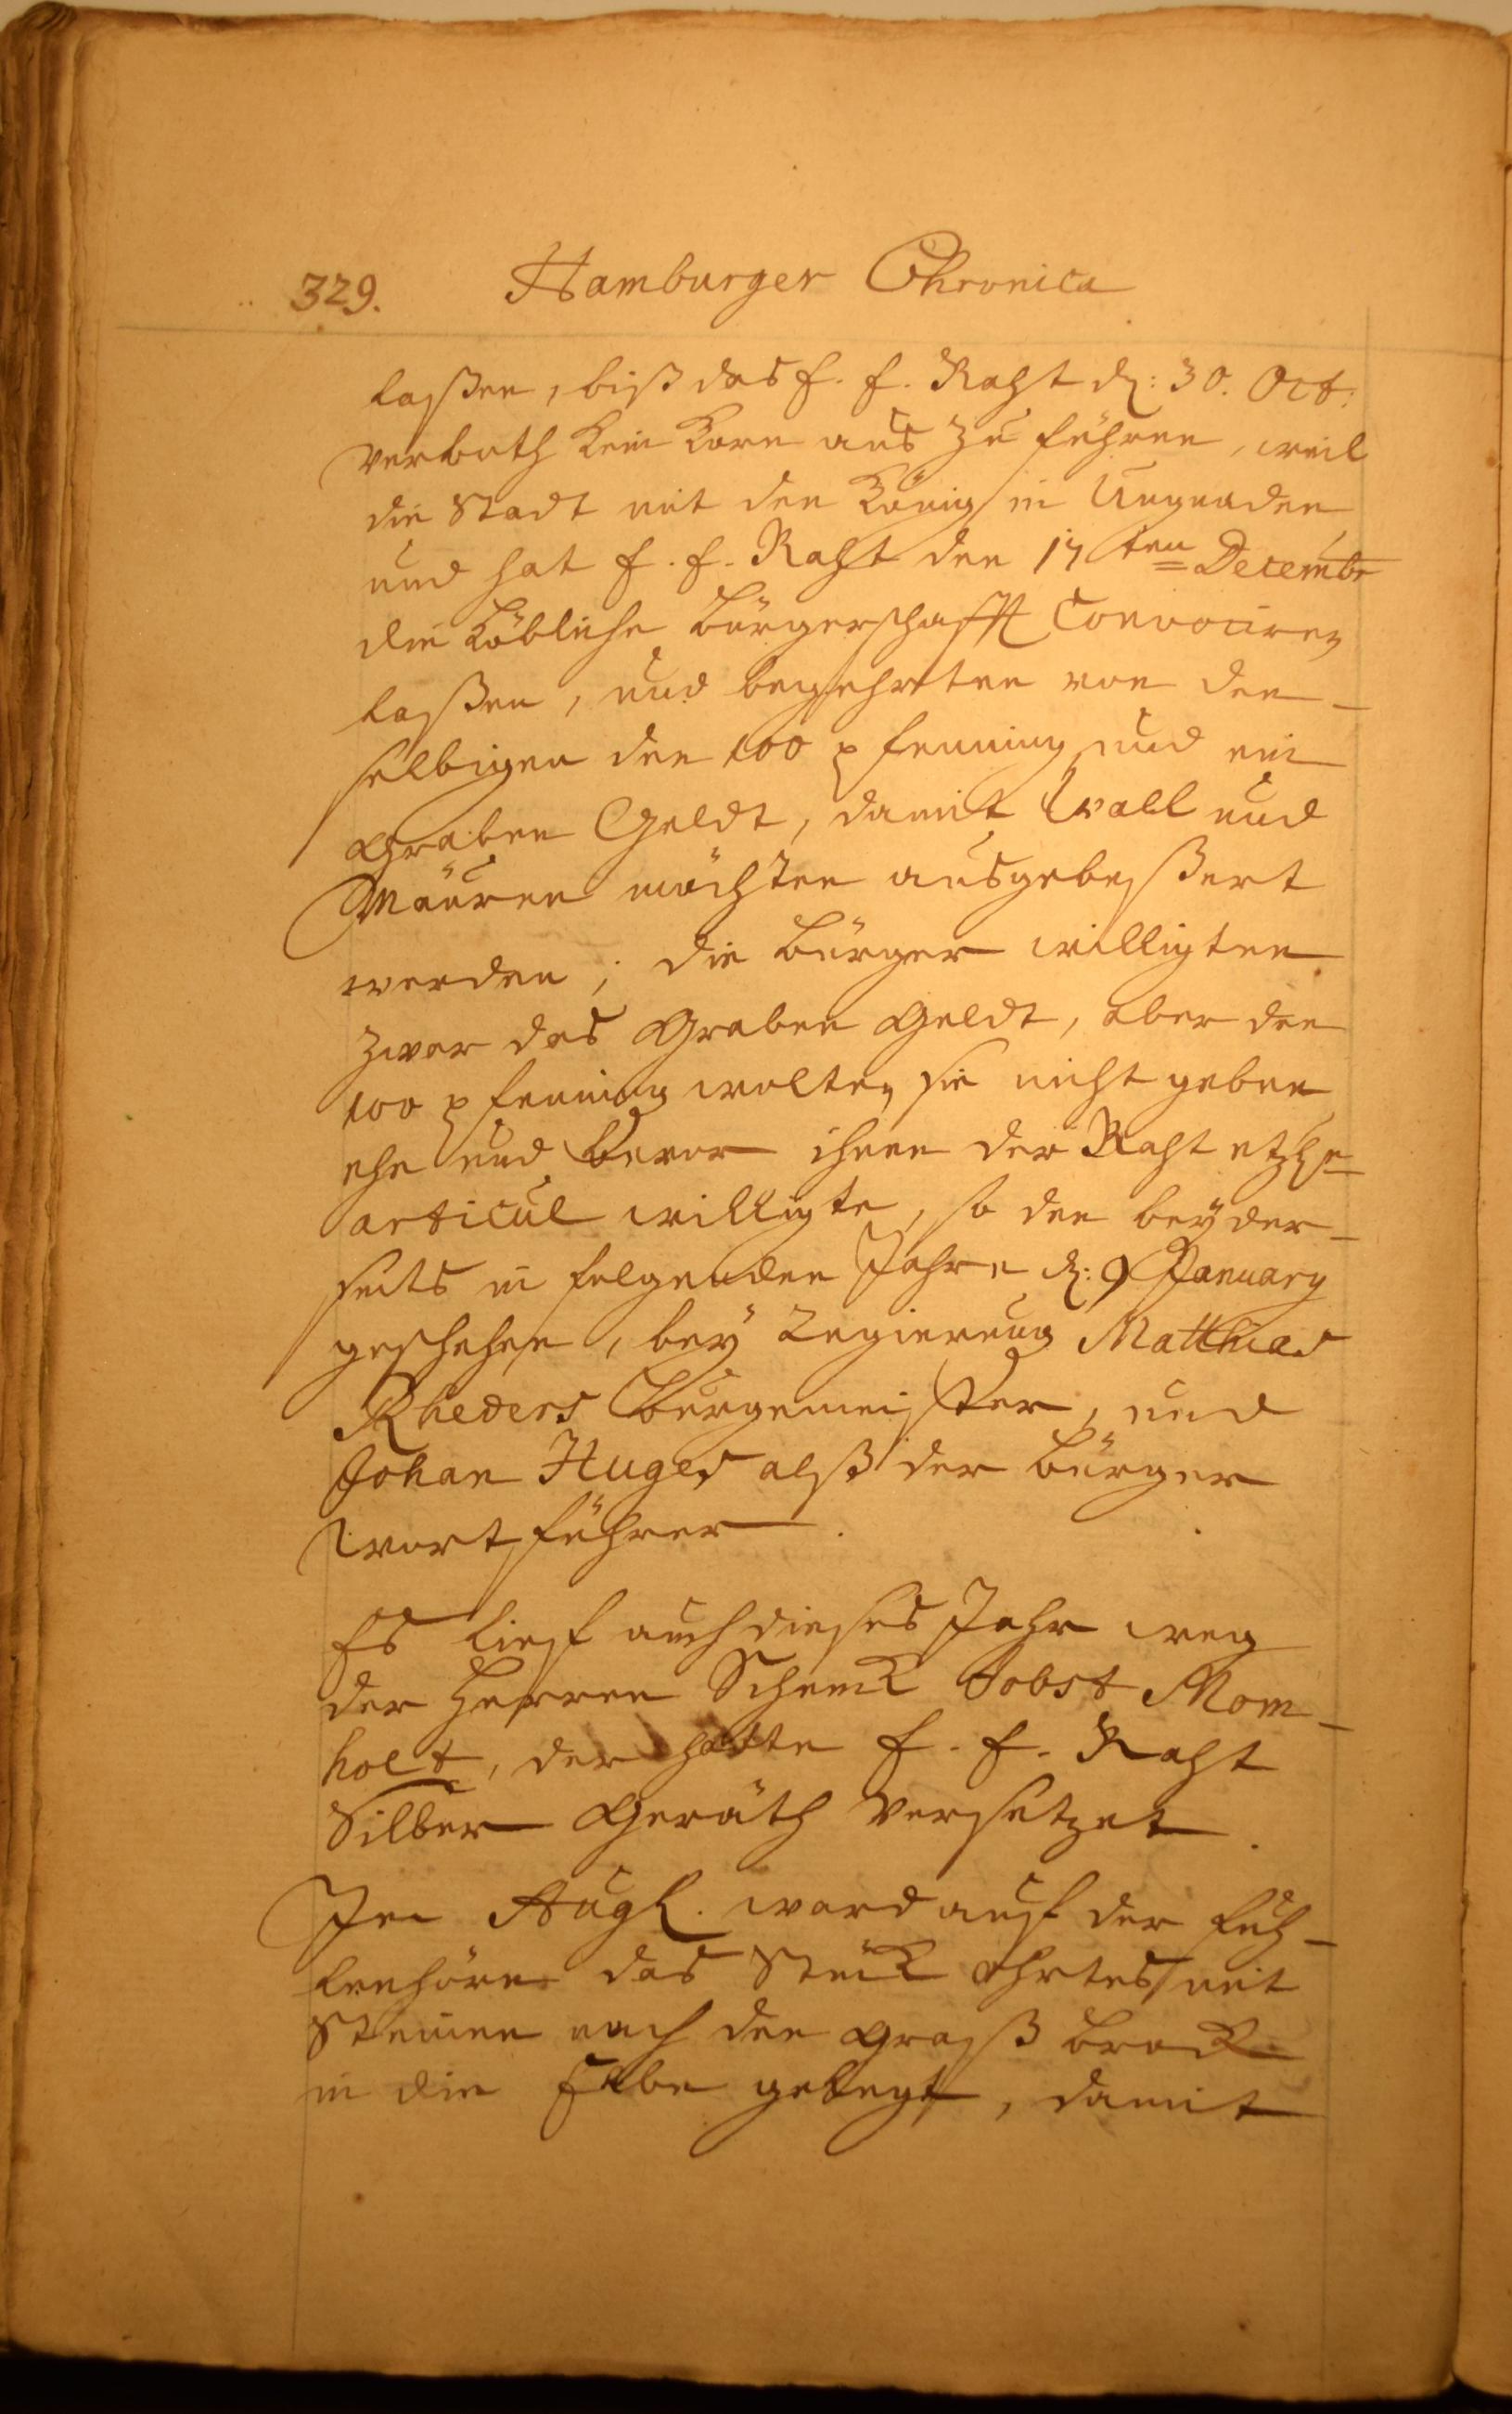 329. Hamburger Chronica
laßen, biß das E. E. Raht d: 30. Oct:
verboth kein Korn aus zu führen, weil
die Stadt mit den König in Ungnaden
und hat E. E. Raht den 17ten Decembr
die Löbliche bürgerschafft Convociren
laßen, und begehrten von den-
selbigen den 100 pfenning und ein
Graben Geldt, damit Wall und
Mauren möchten ausgebeßert
werden; die bürger willigten
zwar das Graben Geldt, aber den
100 pfenning wolten sie nicht geben
ehe und bevor ihnen der Raht etzl:
articul willigte, so den beyder-
seits in folgenden Jahre d: 9 January
geschehen, bey Regierung Matthias
Rheders burgemeister, und
Johan Huges alß der bürger
wortführer.
Es lief auch dieses Jahr weg
der Herren Schenck Jobst Mom-
holt, der hatte E. E. Raht
Silber Geräth versetzet.
Im Aug. ward auf der
das Stück Ohrtes mit
Steinen nach den Graßbrock
in die Elbe gelegt, damit